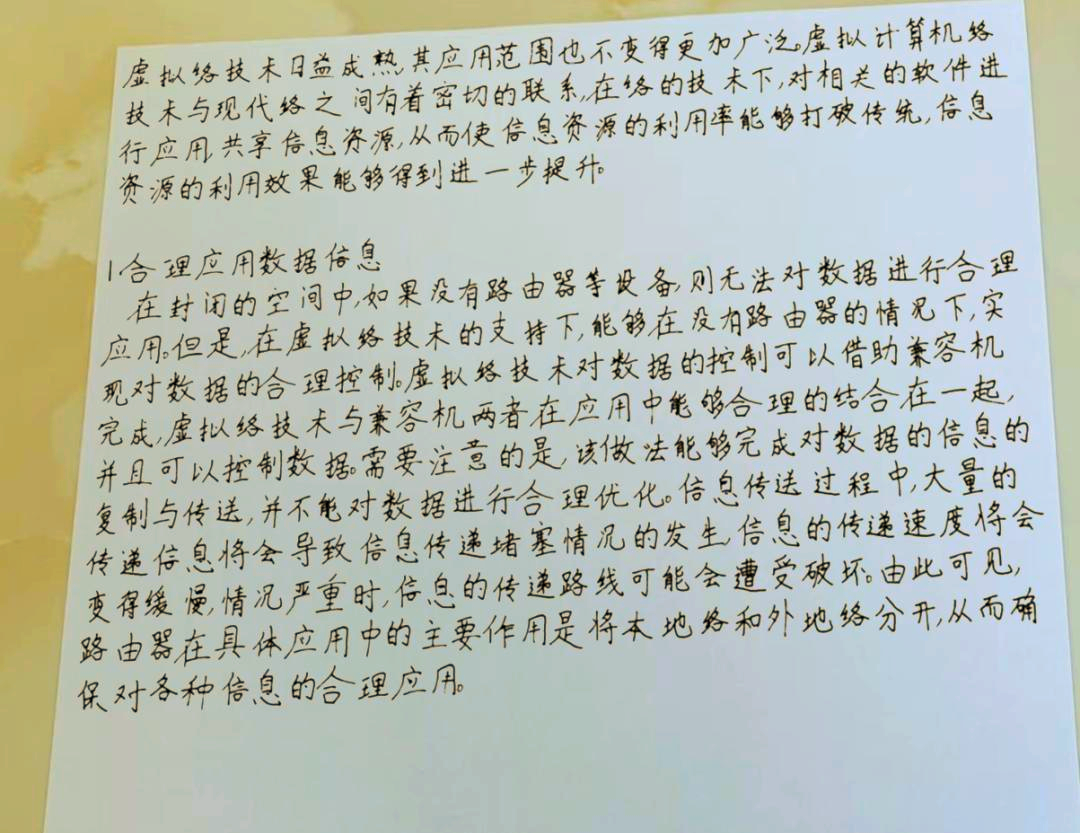 虚拟络技术日益成熟,其应用范围也不变得更加广泛。虚拟计算机络
技术与现代络之间有着密切的联系,在络的技术下,对相关的软件进
行应用,共享信息资源,从而使信息资源的利用率能够打破传统,信息
资源的利用效果能够得到进一步提升。
1合理应用数据信息
在封闭的空间中,如果没有路由器等设备,则无法对数据进行合理
应用。但是,在虚拟络技术的支持下,能够在没有路由器的情况下,实
现对数据的合理控制。虚拟络技术对数据的控制可以借助兼容机
完成,虚拟络技术与兼容机两者在应用中能够合理的结合在一起,
并且可以控制数据。需要注意的是,该做法能够完成对数据的信息的
复制与传送,并不能对数据进行合理优化。信息传送过程中,大量的
传递信息将会导致信息传递堵塞情况的发生,信息的传递速度将会
变得缓慢,情况严重时,信息的传递路线可能会遭受破坏。由此可见,
路由器在具体应用中的主要作用是将本地络和外地络分开,从而确
保对各种信息的合理应用。